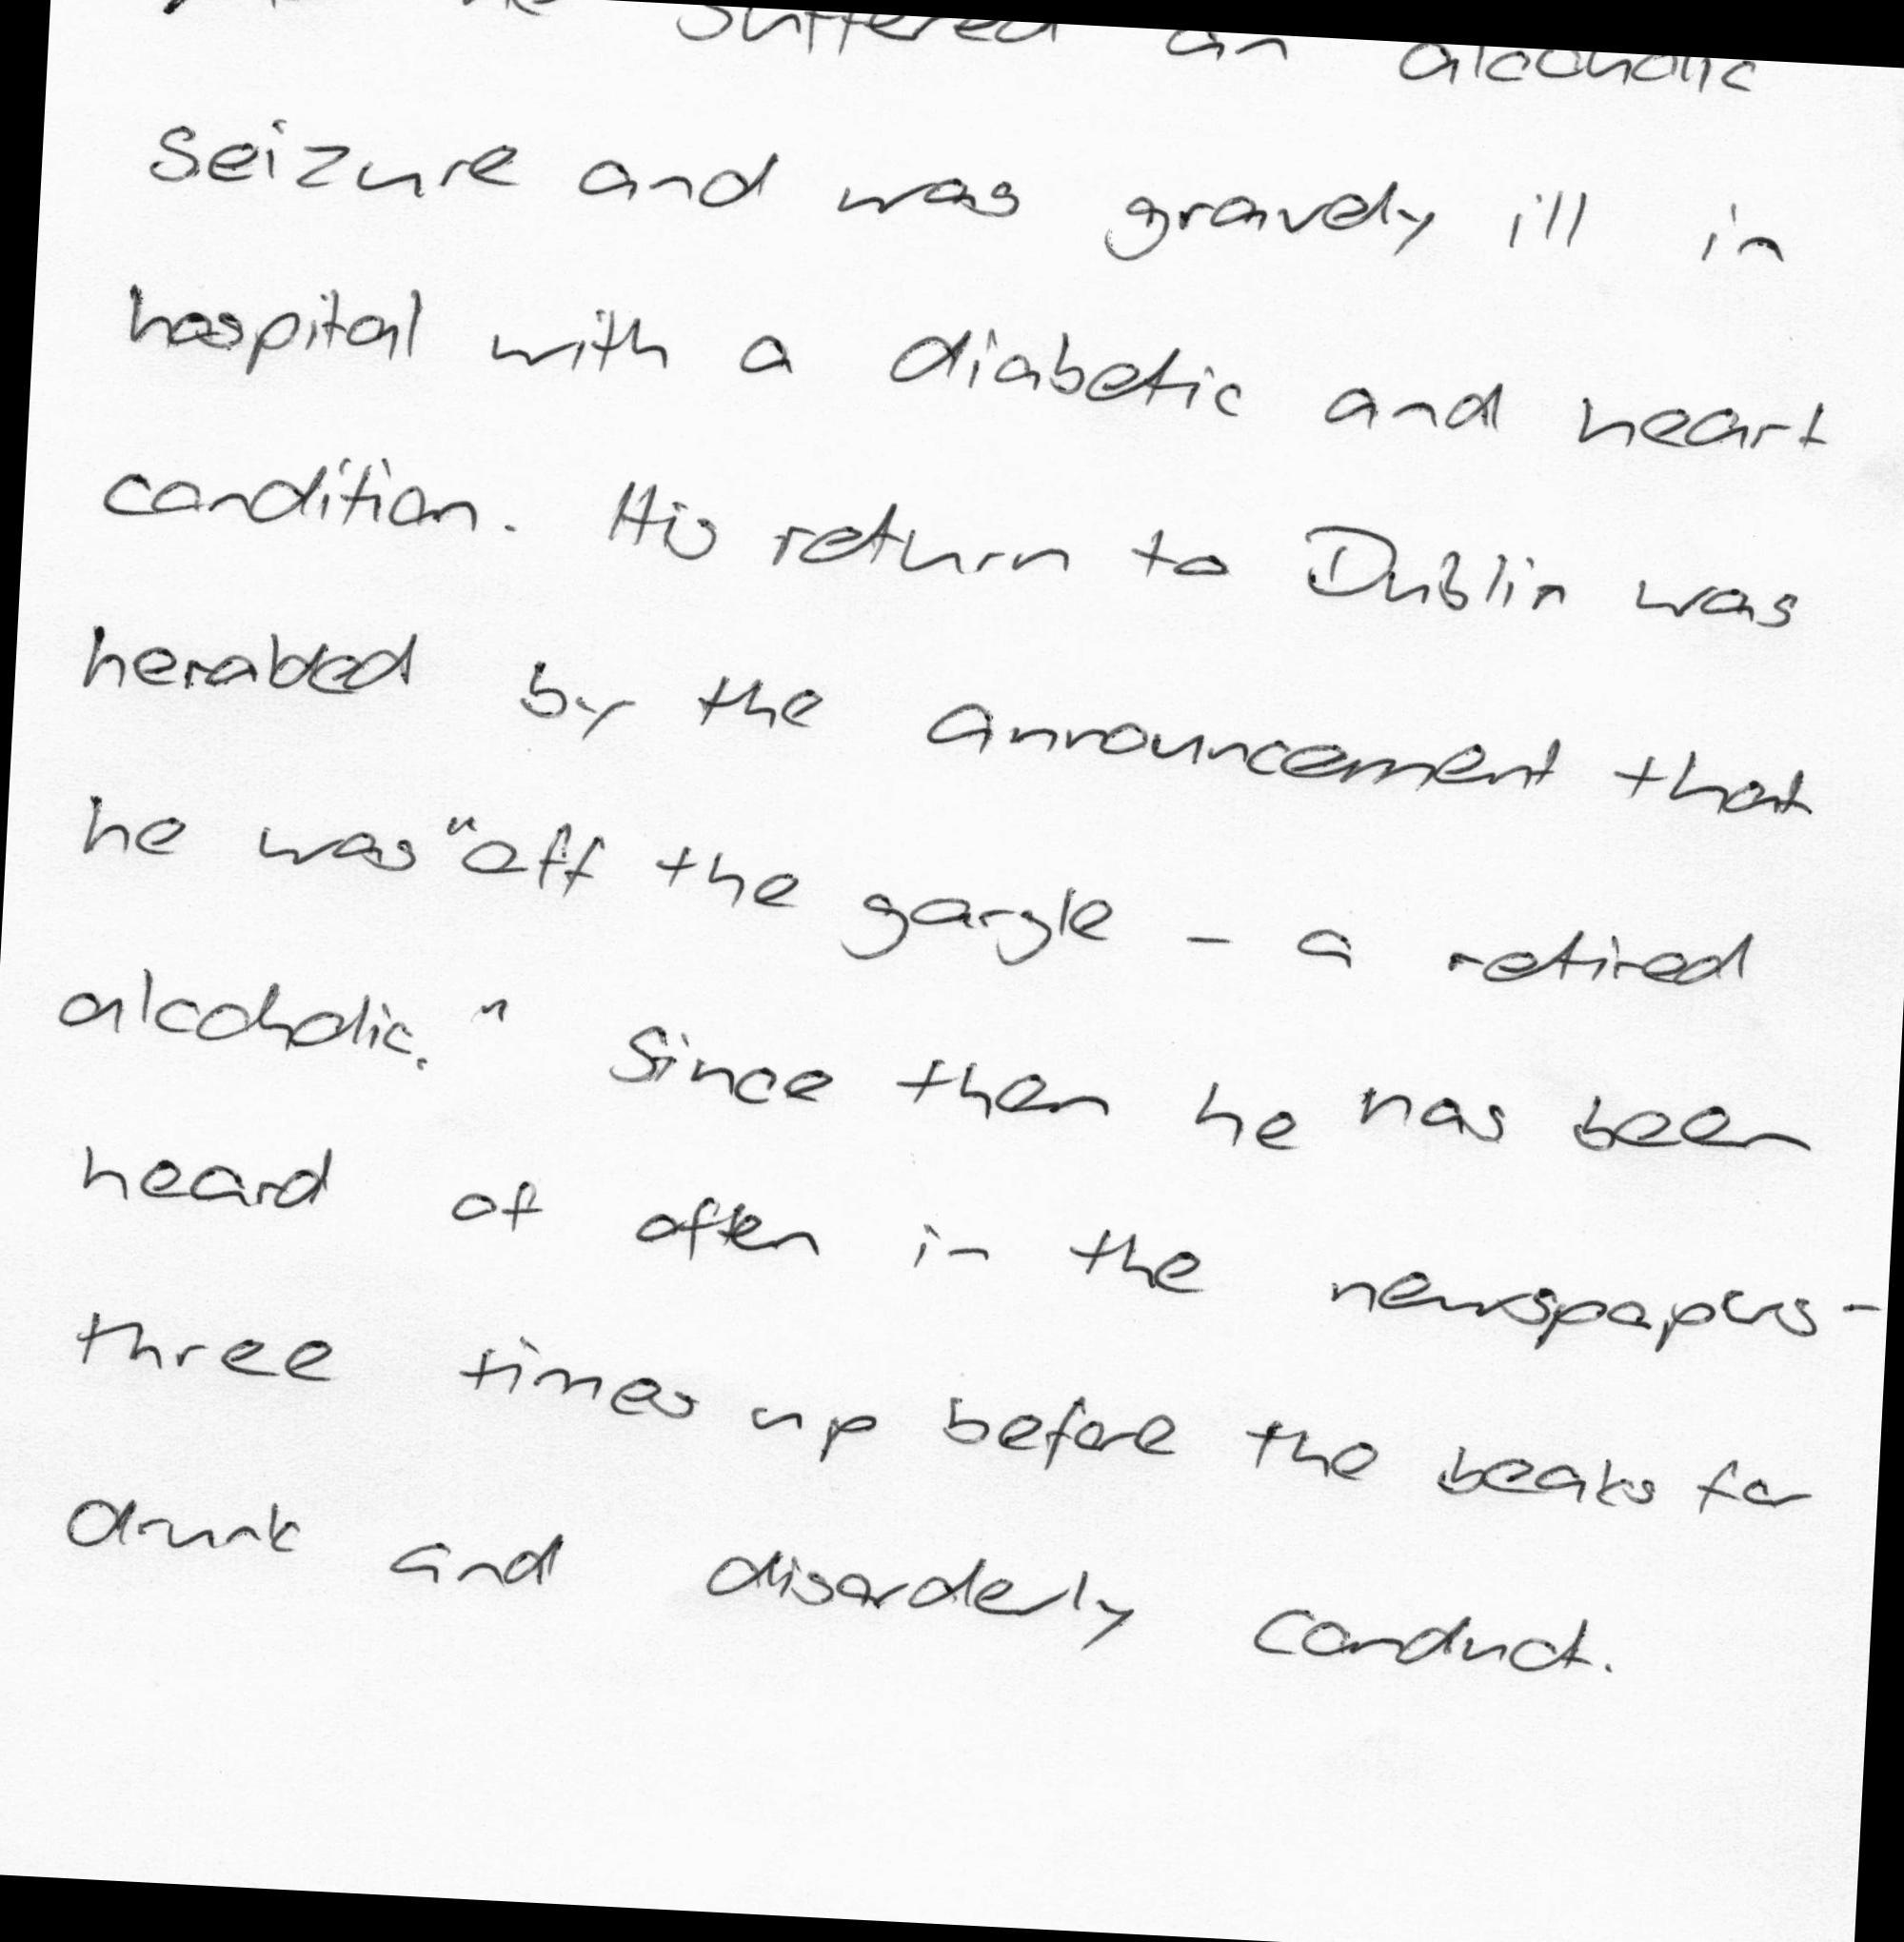 he suffered an alcoholic
seizure and was gravely ill in
hospital with a diabetic and heart
condition. His return to Dublin was
heralded by the announcement that
he was "off the gargle - a retired
alcoholic." Since then he has been
heard of often in the newspapers -
three times up before the beaks for
drunk and disorderly conduct.